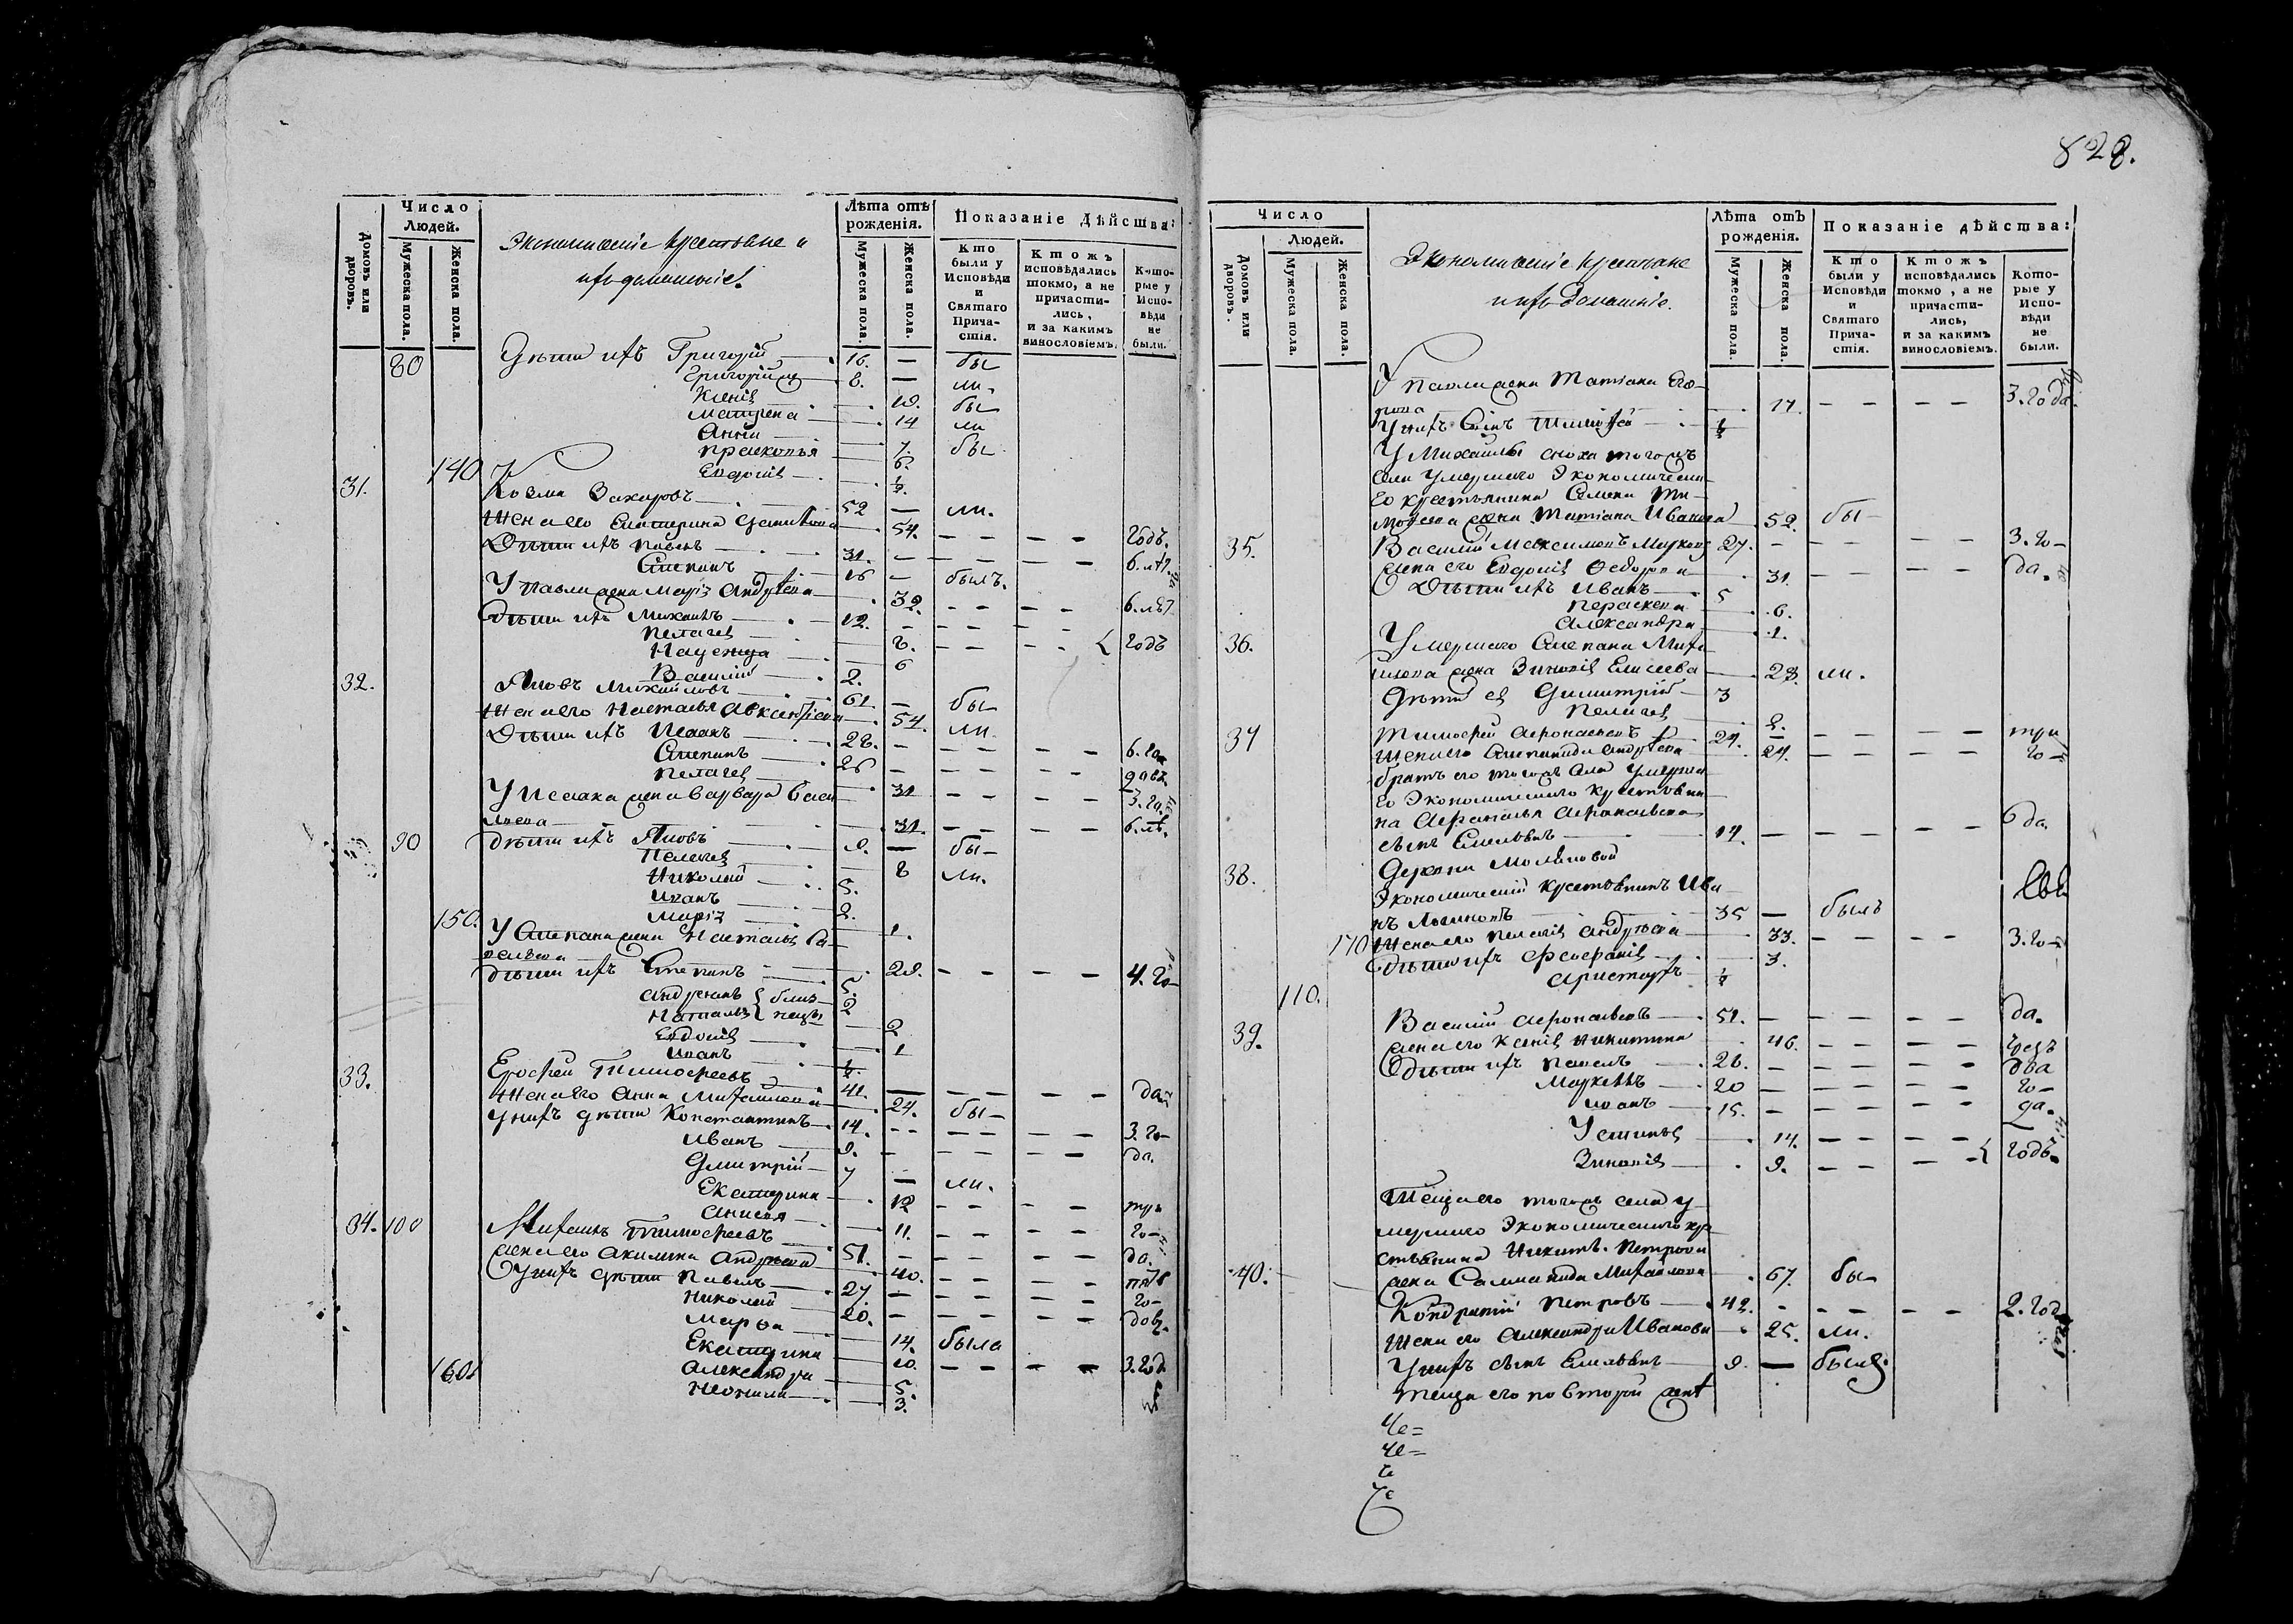 Число Людей.
Домовъ или дворовъ.
Мужеска пола.
Женска пола.
Экономическіе крестьяне и
ихъ домашніе.
Лѣта отъ рожденія.
Мужеска пола.
Женска пола.
Показаніе Дѣйства:
Кто были у Исповѣди и Святаго Причастія.
Ктожъ исповѣдались токмо, а не причастились, и за какимъ винословіемъ.
Которые у Исповѣди не были.
80 Дѣти ихъ Григорій 16. — бы
Григорій 8. — ли.
Ксенія 19. бы
Матрена 14 ли
Анна 7. бы
Прасковья 6.
140 Евдокія
31. Козма Захаровъ 52 — ли.
Жена его Екатерина 54. — — — — годъ.
Дѣти ихъ Павелъ 31. — — — — 6. лѣт.
Степанъ 16 — былъ.
У Павла жена Марія Андреева 32. — — — — 6. лѣт
Дѣти ихъ Михаилъ 12. — — — —
Пелагея 8. — — — — годъ
Надежда 6
Василій 2.
32. Яковъ Михайловъ 61. — бы
Жена его Настасья Авксентіева 54. ли.
Дѣти ихъ Исаакъ 28. — — — 6. го
Степанъ 26 — — —
Пелагея 31 — — — — 3. го.
У Исаака жена Варвара Васи
льева 31. — — — — 6. лѣ.
90 Дѣти ихъ Яковъ 9. — бы—
Пелагея 8 ли.
Николай 5.
Иванъ 2.
150. Марія 1.
У Степана жена Настасья Са
вельева 29. — — — — 4. го—
Дѣти ихъ Степанъ 5.
Андреянъ } близ— 2
Наталья } нецы 2
Евдокія 1
Иванъ
33. Ерофей Тимофеевъ 41. — — — — — да
Жена его Анна Михайлова 24. бы—
У нихъ дѣти Константинъ 14. — — — — 3. го—
Иванъ 9. — — — — да.
Дмитрій 7 — ли.
Екатерина 12 — — — — три
Анисья 11. — — — — го—
34. 100 Михаилъ Тимофеевъ 51. — — — — да.
жена его Акилина Андреева 40. — — — —
У нихъ дѣти Павелъ 27. — — — — го—
Николай 20. — — — —
Марѳа 14. была
Екатерина 10. — — — — 3. год
160 Александра 5.
Неонила 3.
828.
Число
Людей.
Домовъ или дворовъ.
Мужеска пола.
Женска пола.
Экономическіе крестьяне
и ихъ домашніе.
Лѣта отъ рожденія.
Мужеска пола.
Женска пола.
Показаніе дѣйства:
Кто были у Исповѣди и Святаго Причастія.
Ктожъ исповѣдались токмо, а не причастились, и за какимъ винословіемъ.
Которые у Исповѣди не были.
У Павла жена Татіана Его—
рова 17. — — — — 3. года.
У нихъ сынъ Тимофей
У Михаилы сноха тогожъ
села умершаго Экономическа
го крестьянина Семена Ти—
мофеева жена Татіана Иванова 52. бы—
35. Василій Максимовъ 27. — — — — — 3. го—
жена его Евдокія Ѳедорова 31. — — — — да.
Дѣти ихъ Иванъ 5
Параскева 6.
Александра 1.
36. Умершаго Степана Миха
йлова жена Зиновія Елисеева 28. ли.
Дѣти ея Димитрій 3
Пелагея 2.
37 Тимофей Афонасьевъ 24. — — — — — три
Жена его Степанида Андреева 24. — — — — го—
братъ его тогожъ села умерша
го Экономическаго крестьяни
на Афанасья Афонасьева
сынъ Емельянъ 17. — — — — — да.
38. Деревни
Экономической крестьянинъ Ива
нъ Логиновъ 35 — былъ
170 Жена его Пелагія Андреева 33. — — — — 3. го—
Дѣти ихъ Феофанія 3.
110. Аристархъ
39. Василій Афонасьевъ 51. — — — — — да.
жена его Ксенія Никитина 46. — — — —
Дѣти ихъ Павелъ 26. — — — — — два
Маркелъ 20 — — — — — го—
Иванъ 15. — — — — — да.
Устинья 14. — — — —
Зиновія 9. — — — — годъ.
Теща его тогожъ села у
мершаго Экономическаго кре
стьянина Никиты Петрова
жена Саломанида Михайлова 67. бы—
40. Кондратій Петровъ 42. — — — — — 2. год
Жена его Александра Иванова 25. ли.
У нихъ сынъ Емельянъ 9. — былъ.
Теща его по второй женѣ
Че=
Че=
Че
Че